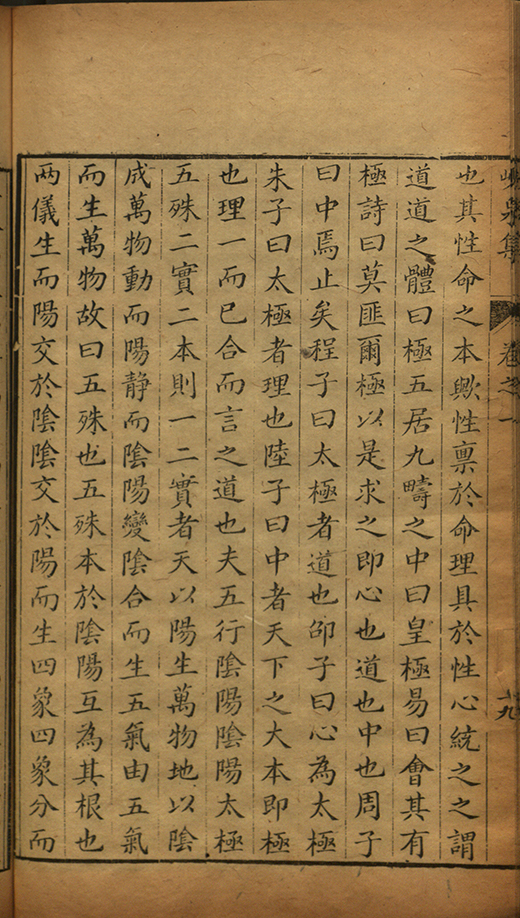 峴泉集 卷之一 十九
也其性命之本歟性禀於命理具於性心統之之謂
道道之體曰極五居九疇之中曰皇極易曰會其有
極詩曰莫匪爾極以是求之即心也道也中也周子
曰中焉止矣程子曰太極者道也邵子曰心為太極
朱子曰太極者理也陸子曰中者天下之大本即極
也理一而已合而言之道也夫五行陰陽陰陽太極
五殊二實二本則一二實者天以陽生萬物地以陰
成萬物動而陽静而陰陽變陰合而生五氣由五氣
而生萬物故曰五殊也五殊本於陰陽互為其根也
两儀生而陽交於陰陰交於陽而生四象四象分而